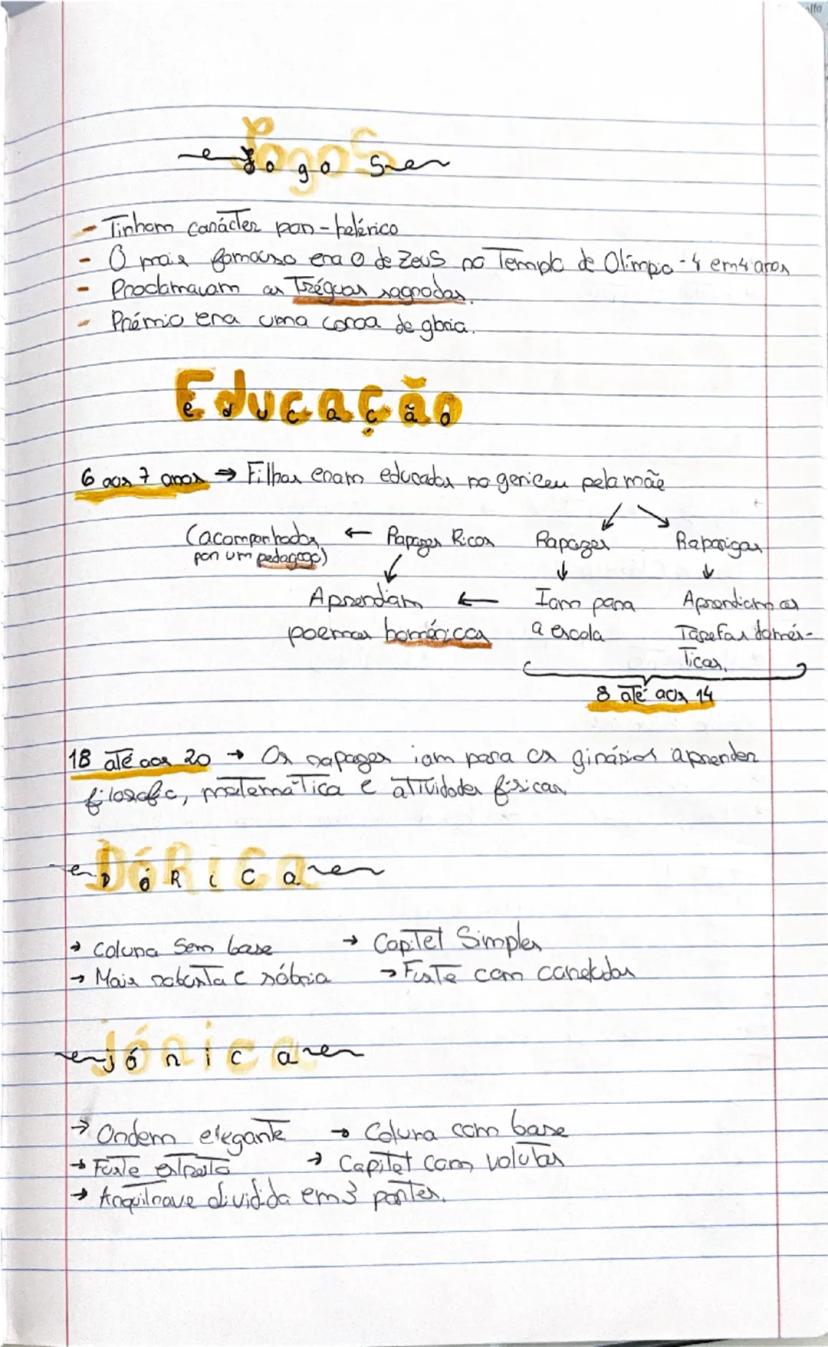 Jogos
- Tinham carácter pan-helénico
- O mais famouso era o de Zeus no Templo de Olímpia - 4 em 4 anos
- Proclamavam as Tréguas sagradas.
- Prémio era uma coroa de glória.
Educação
6 aos 7 anos → Filhos eram educados no gineceu pela mãe
(acompanhados ← Rapazes Ricos Rapazes Raparigas
por um pedagogo)
Aprendiam ← Iam para Aprendiam as
poemas homéricos a escola Tarefas domés-
ticas.
8 até aos 14
18 até aos 20 → Os rapazes iam para os ginásios aprender
filosofia, matemática e atividades físicas
DÓRICA
→ Coluna Sem base → Capitel Simples
→ Mais robusta e sóbria → Fuste com caneluras
jónica
→ Ordem elegante → Coluna com base
→ Fuste estreito → Capitel com volutas
→ Arquitrave dividida em 3 partes.